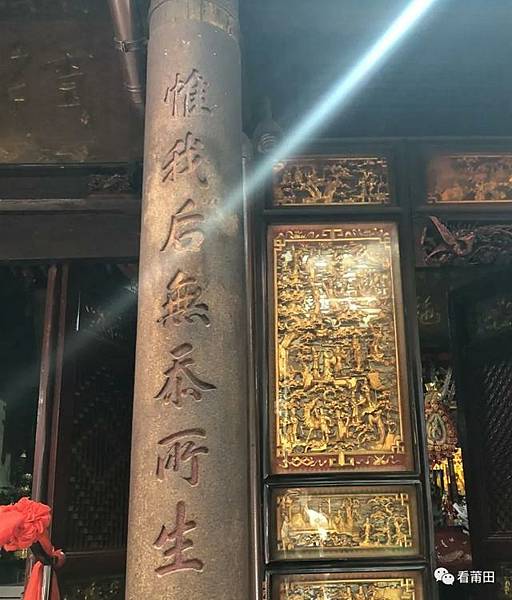 惟我后無忝所生
看莆田